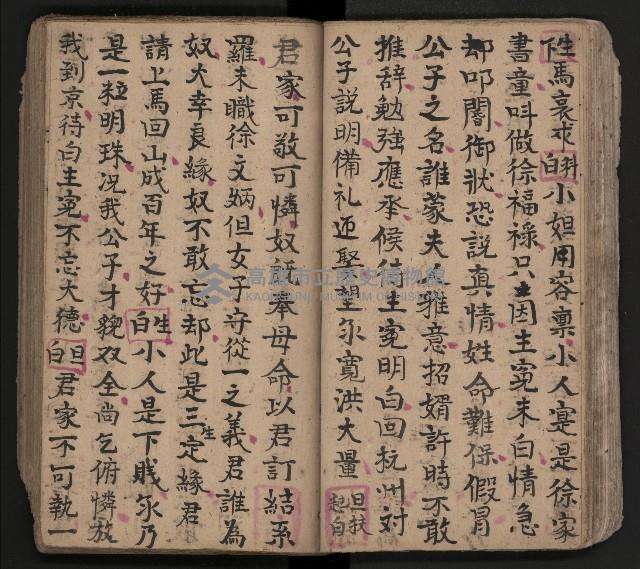 下性馬哀求科白小姐用容禀小人寔是徐家
書童呌做徐福禄只因主寃未白情急
却叩閽御狀恐説真情姓命難保假冒
公子之名誰蒙夫人雅意招婿許時不敢
推辞勉強應承候待主寃明白回杭州対
公子説明備礼迎娶望尔寬洪大量 旦扶起白
君家可敬可憐奴 奉母命以君訂結系
羅未職徐文炳但女子守從一之義君誰為
奴大幸良緣奴不敢忘却此是三生定緣君
請上馬回山成百年之好 生白小人是下賎尔乃
是一粒明珠况我公子才貌双全尚乞俯憐放
我到京待白主寃不忘大德 旦白君家不可執一
高雄市立歷史博物館
KAOHSIUNG MUSEUM OF HISTORY